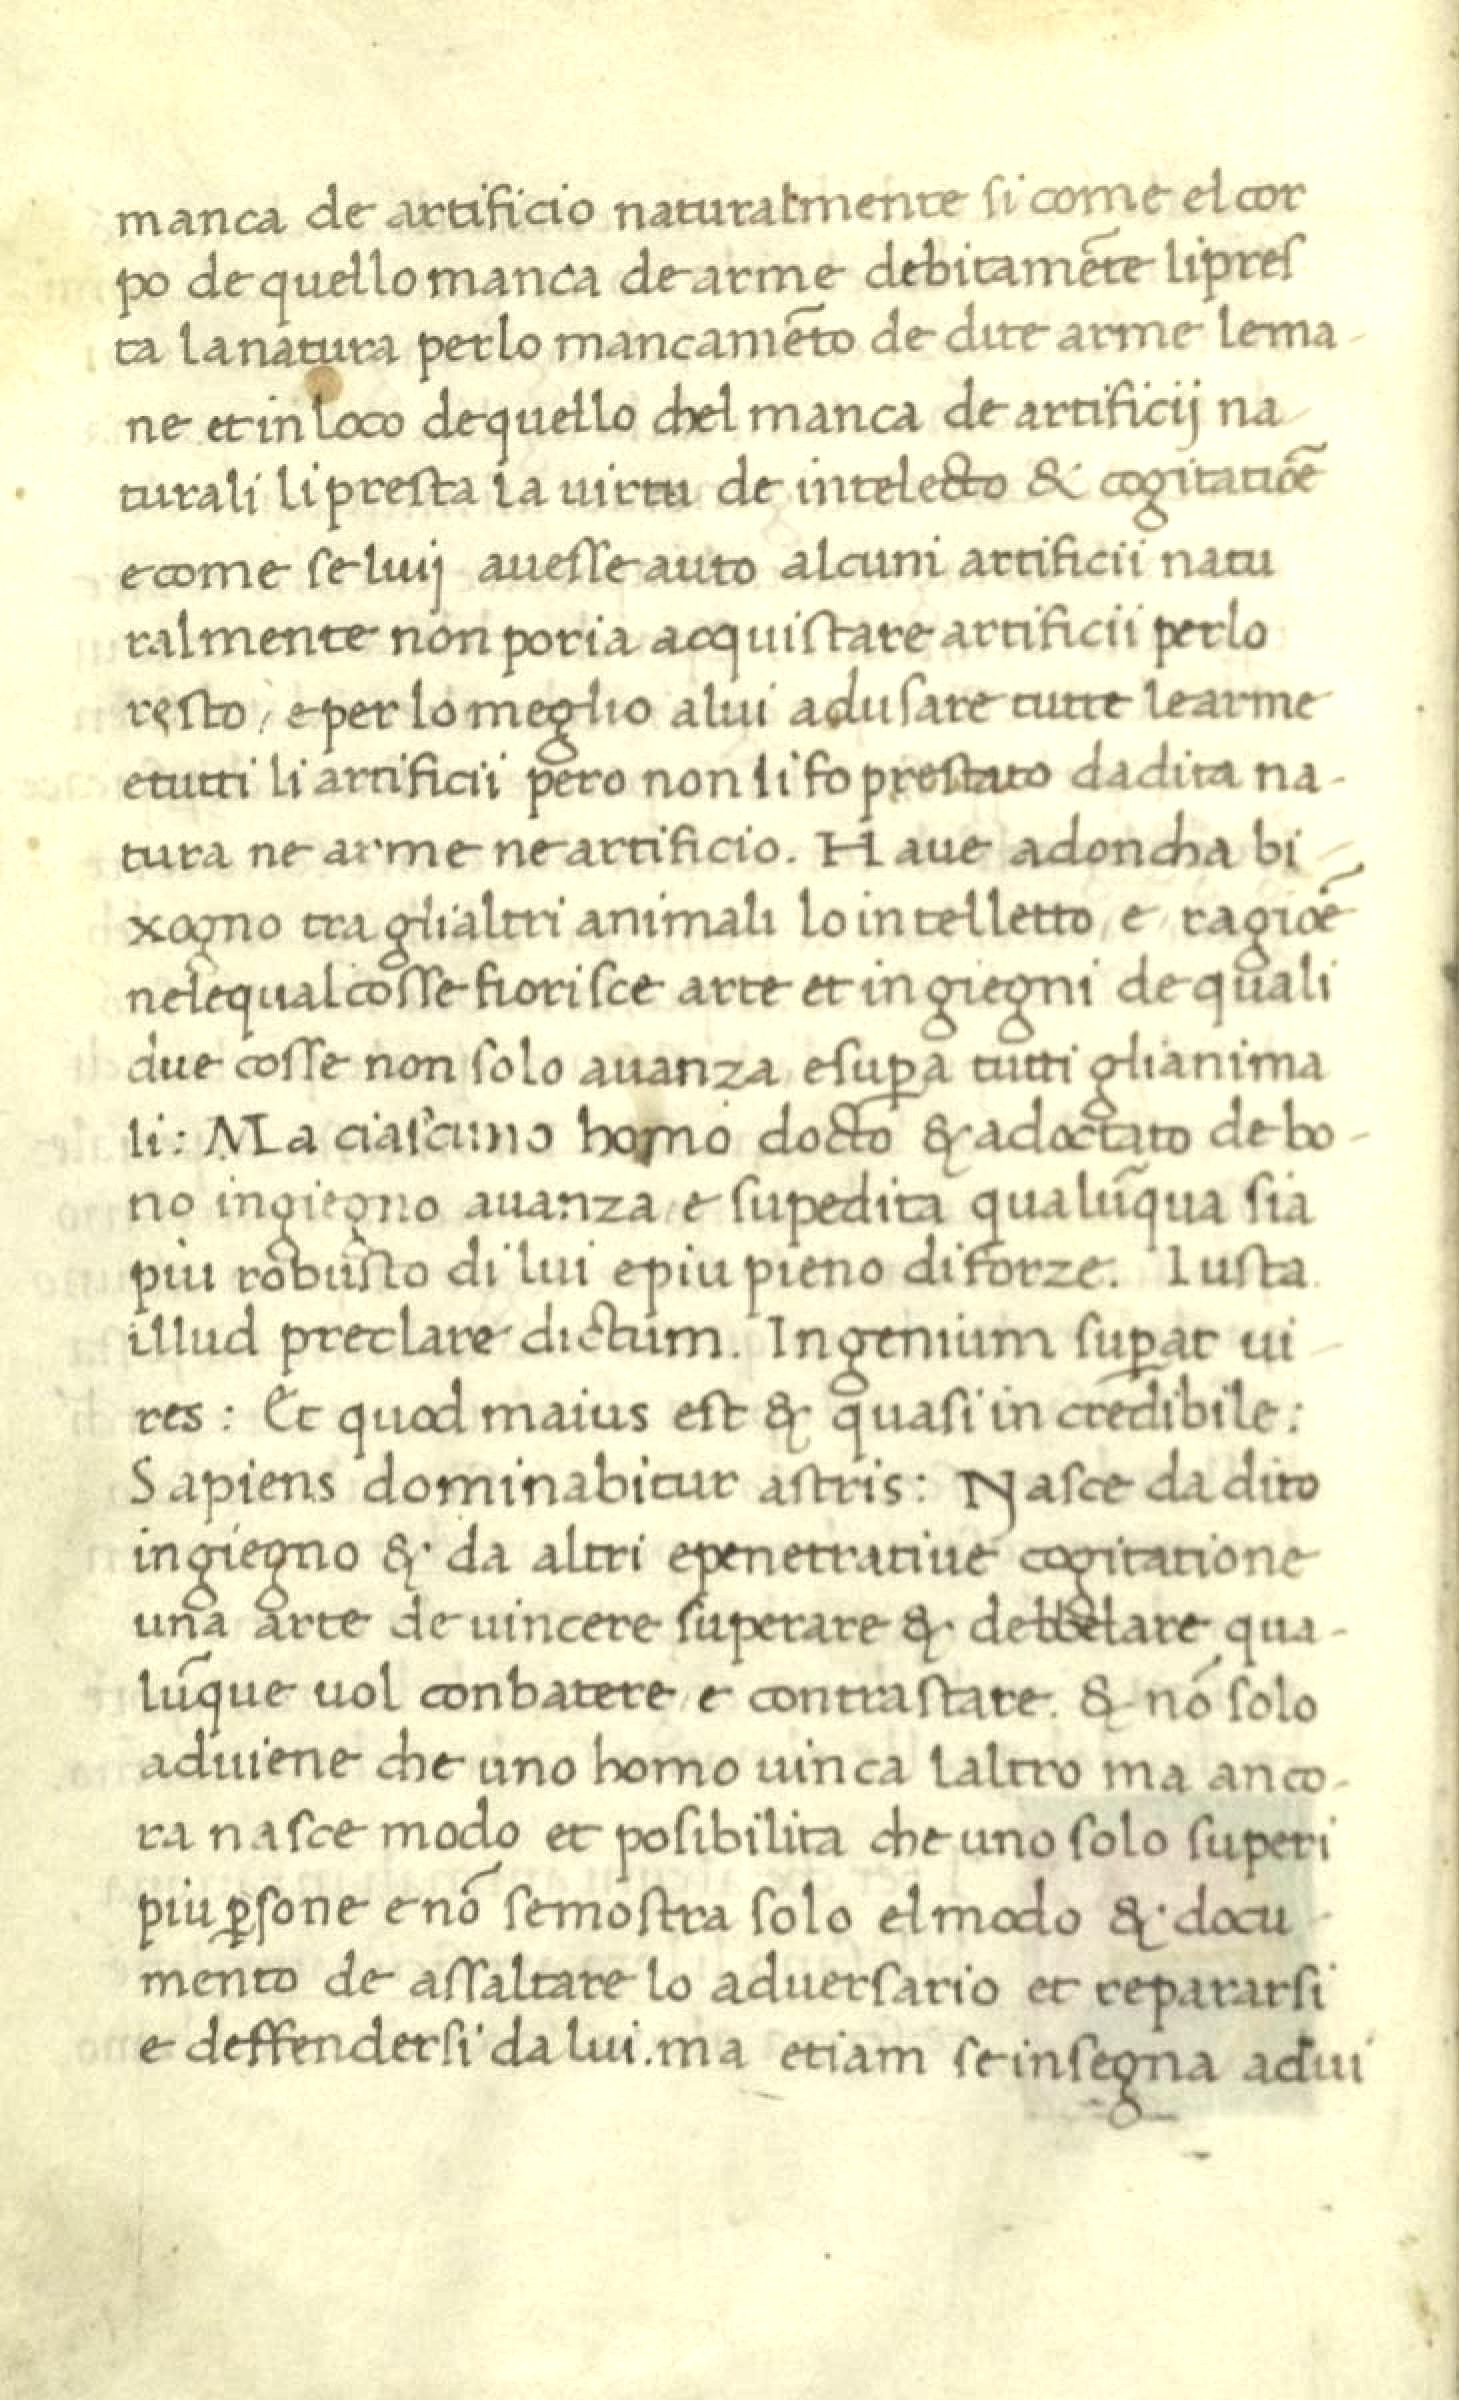 manca de artificio naturalmente si come el cor
po de quello manca de arme debitamẽte li pres
ta la natura per lo mancamẽto de dite arme le ma-
ne et in loco de quello chel manca de artificij na
turali li presta la uirtu de intelecto & cogitatiõe
e come se luij auesse auto alcuni artificii natu
ralmente non poria acquistare artificii per lo
resto, e per lo meglio a lui ad usare tutte le arme
e tutti li artificii pero non li fo prestato da dita na-
tura ne arme ne artificio. Haue adoncha bi-
xogno tra gli altri animali lo intelletto, e, ragiõe
ne le qual cosse fiorisce arte et ingiegni de quali
due cosse non solo auanza e suꝑa tutti gli anima
li: Ma ciascuno homo docto & adoctato de bo-
no ingiegno auanza, e supedita qualũqua sia
piu robusto di lui e piu pieno di forze. Iusta
illud preclare dictum. Ingenium suꝑat ui-
res: Et quod maius est & quasi incredibile:
Sapiens dominabitur astris: Nasce da dito
ingiegno & da altri e penetratiue cogitatione
una arte de uincere superare & debbelare qua-
lũque uol conbatere, e contrastare. & nõ solo
aduiene che uno homo uinca laltro ma anco-
ra nasce modo et posibilita che uno solo superi
piu ꝑsone e nõ se mostra solo el modo & docu-
mento de assaltare lo aduersario et repararsi
e deffendersi da lui. ma etiam se insegna adui